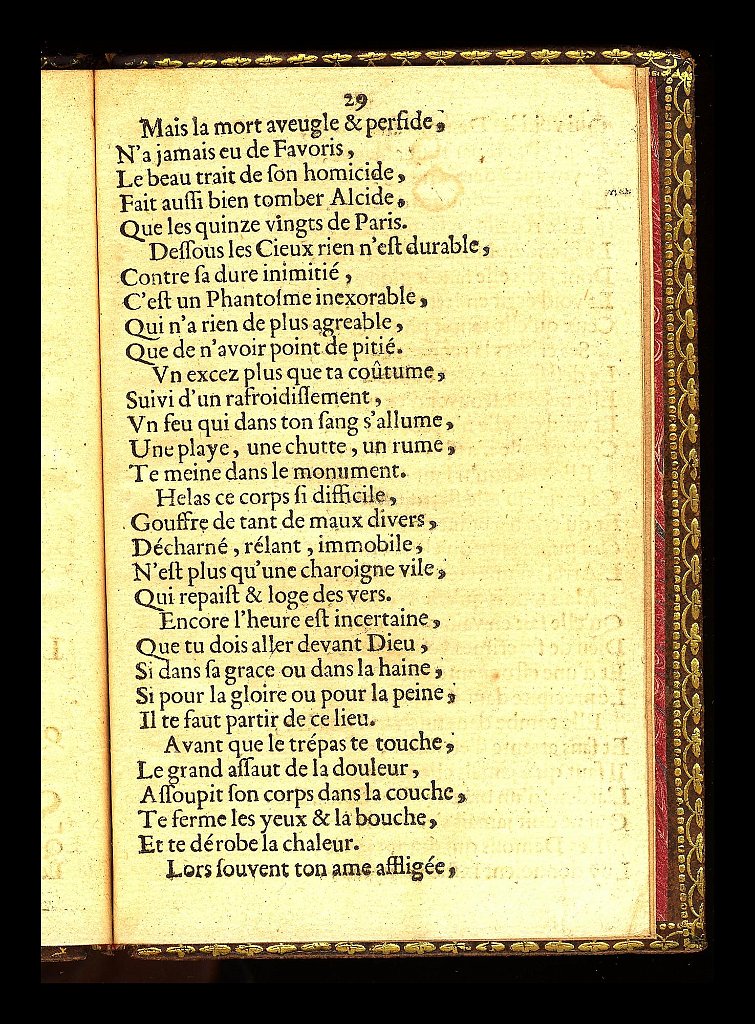 29
Mais la mort aveugle & perfide,
N'a jamais eu de Favoris,
Le beau trait de ſon homicide,
Fait auſſi bien tomber Alcide,
Que les quinze vingts de Paris.
Deſſous les Cieux rien n'eſt durable,
Contre ſa dure inimitié,
C'eſt un Phantoſme inexorable,
Qui n'a rien de plus agreable,
Que de n'avoir point de pitié.
Vn excez plus que ta coûtume,
Suivi d'un rafroidiſſement,
Vn feu qui dans ton ſang s'allume,
Une playe, une chutte, un rume,
Te meine dans le monument.
Helas ce corps ſi difficile,
Gouffre de tant de maux divers,
Décharné, rélant, immobile,
N'eſt plus qu'une charoigne vile,
Qui repaiſt & loge des vers.
Encore l'heure eſt incertaine,
Que tu dois aller devant Dieu,
Si dans ſa grace ou dans la haine,
Si pour la gloire ou pour la peine,
Il te faut partir de ce lieu.
Avant que le trépas te touche,
Le grand aſſaut de la douleur,
Aſſoupit ſon corps dans la couche,
Te ferme les yeux & la bouche,
Et te dérobe la chaleur.
Lors ſouvent ton ame affligée,